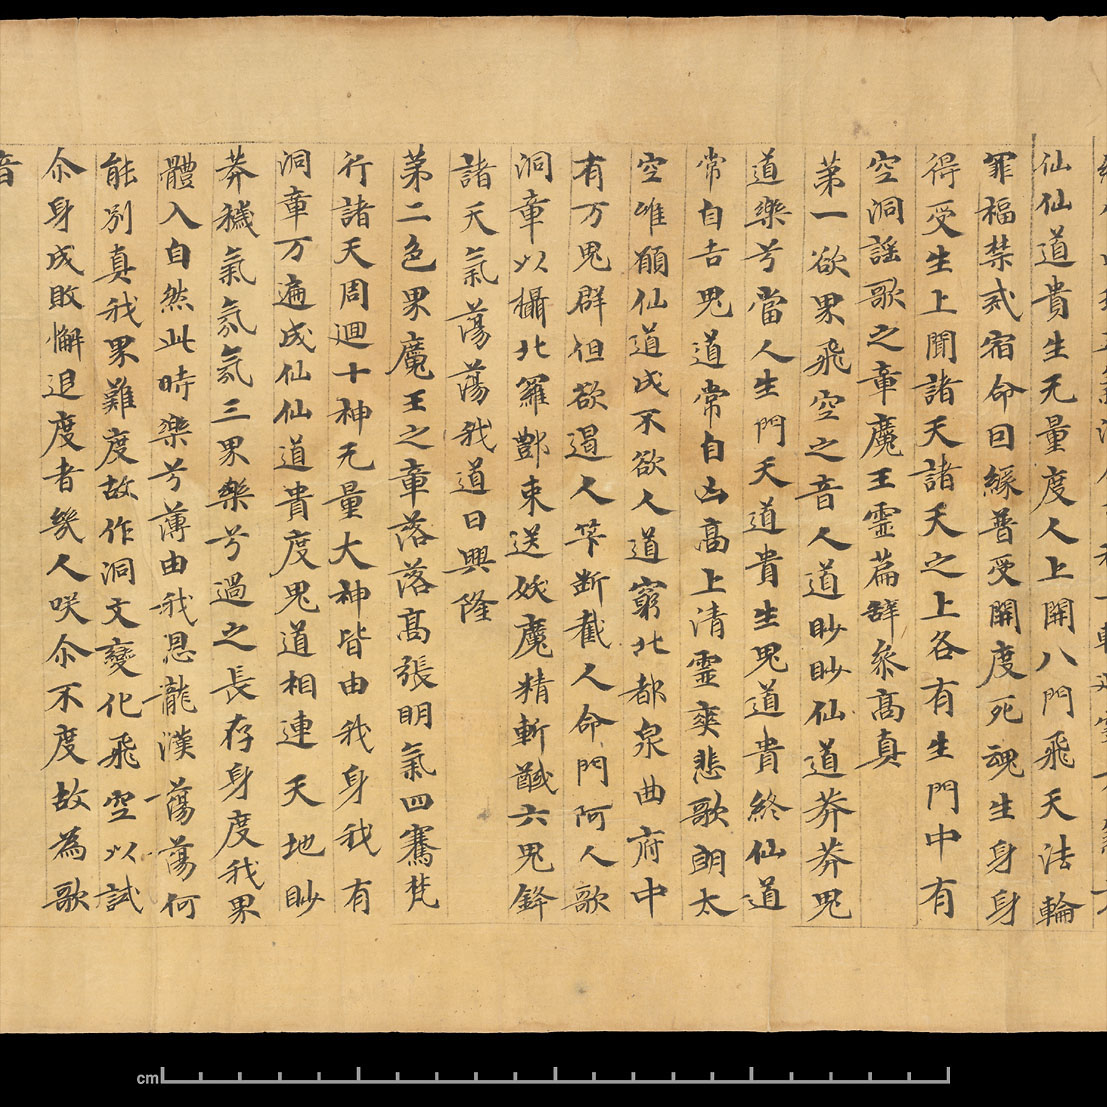 仙仙道貴生无量度人上開八門飛天法輪
罪福禁戒宿命因緣普受開度死魂生身身
得受生上聞諸天諸天之上各有生門中有
空洞謠歌之章魔王靈篇辞參高真
苐一欲界飛空之音人道眇眇仙道莽莽鬼
道樂兮當人生門天道貴生鬼道貴終仙道
常自吉鬼道常自凶高上清靈爽悲歌朗太
空唯願仙道成不欲人道窮北都泉曲府中
有万鬼群但欲遏人筭斷截人命門阿人歌
洞章以攝北羅酆束送妖魔精斬馘六鬼鋒
諸天氣蕩蕩我道日興隆
苐二色界魔王之章落落高張明氣四騫梵
行諸天周迴十神无量大神皆由我身我有
洞章万遍成仙仙道貴度鬼道相連天地眇
莽穢氣氛氛三界樂兮過之長存身度我界
體入自然此時樂兮薄由我恩龍漢蕩蕩何
能別真我界難度故作洞文變化飛空以試
尒身成敗懈退度者幾人咲尒不度故為歌
音